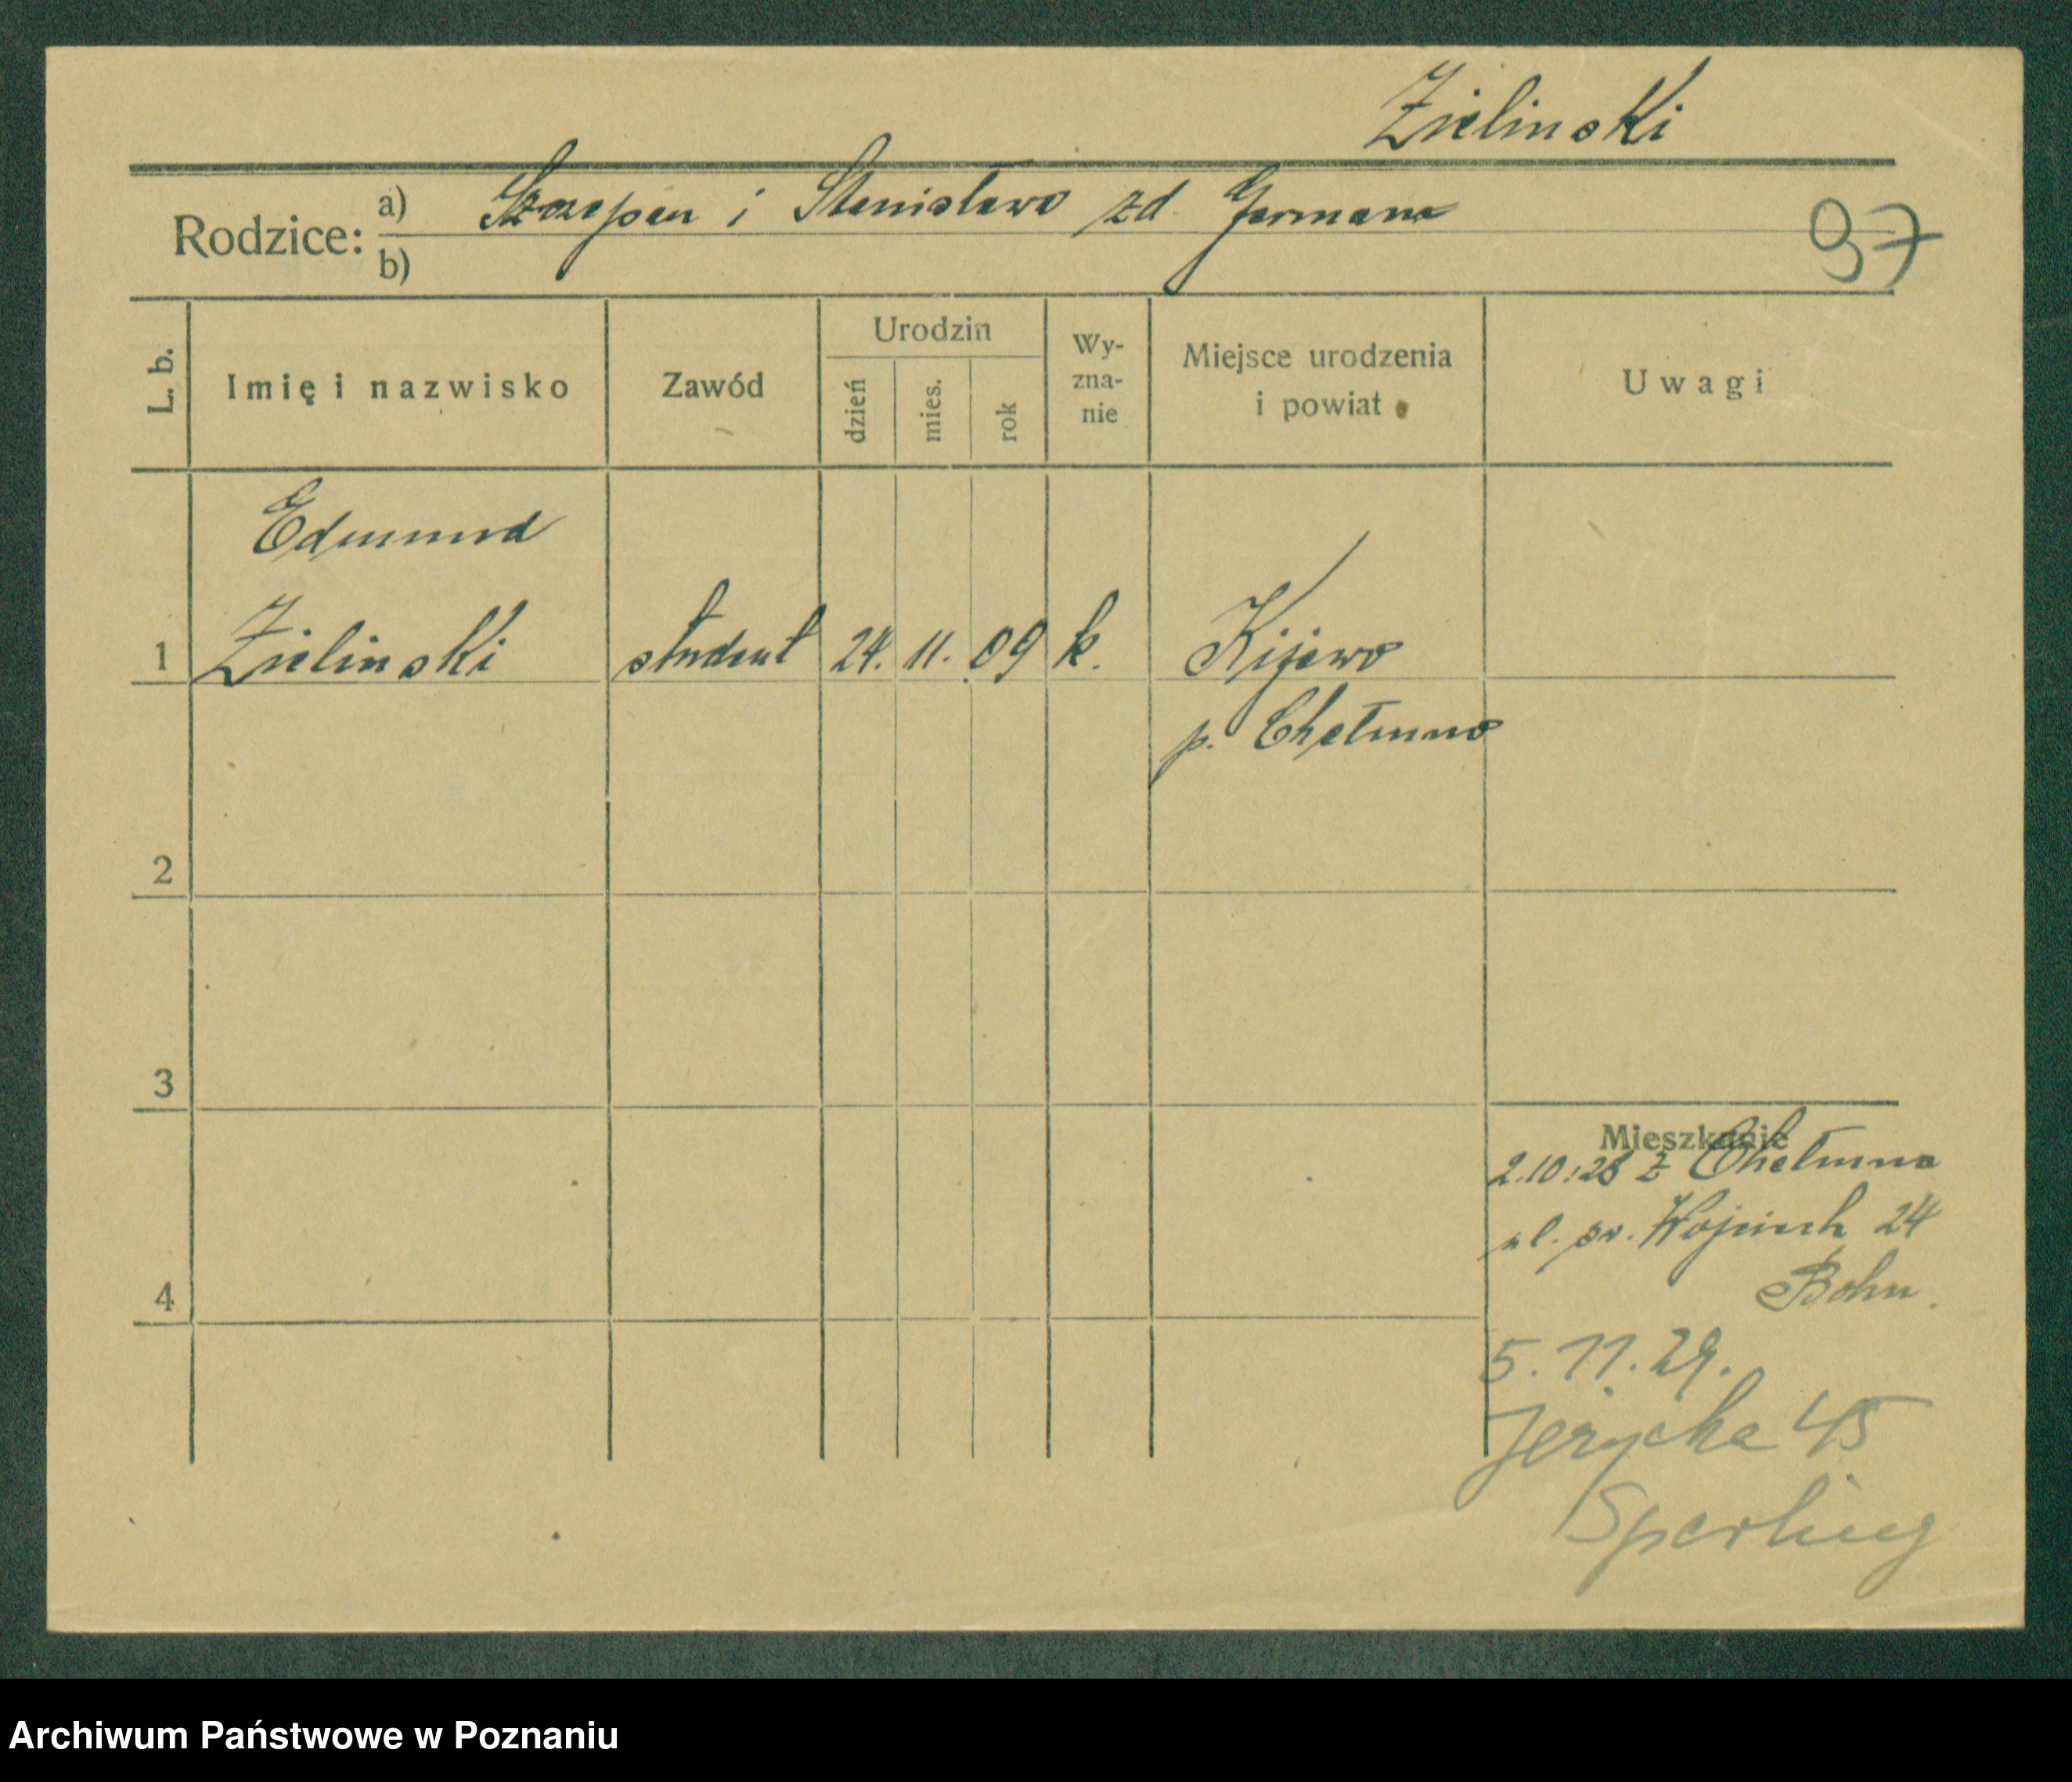 Zielinski
Rodzice: a) Szczepan i Stanisława zd. Germana
b)
97
L. b. Imię i nazwisko Zawód Urodzin dzień mies. rok Wy-zna-nie Miejsce urodzenia i powiat Uwagi
Edmund
1 Zielinski student 24. 11. 09 k. Kijewo
p. Chełmno
2
3
Mieszkanie
2.10.28 z Chełmna
ul. św. Wojciech 24
4 Bohn.
5. 11. 29.
Jeżycka 45
Sperling
Archiwum Państwowe w Poznaniu